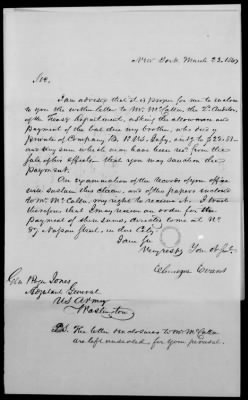 New York March 23. 1849
Sir,
I am advised that it is proper for me to inclose
to you the within letter to Mr. McCalla, the 2d. Auditor
of the Treasy Department, asking the allowance and
payment of the bal due my brother, who died a
private of Company
any sum which may have been recd. from the
sale of his effects that you may sanction the
payment.
An examination of the Records of your office
will sustan this claim, and of the papers inclosed
to Mr. McCalla, my right to receive it. I trust
therefore that I may receive an order for the
payment of these sums, directed to me at No.
57 Nassau Street, in this City
I am Sir
Very respy Your ob St.
Evans
Genl Roger Jones
Adjutant General
US Army
Washington
P.S. The letter & inclosures to Mr McCalla
are left unsealed for your perusal.